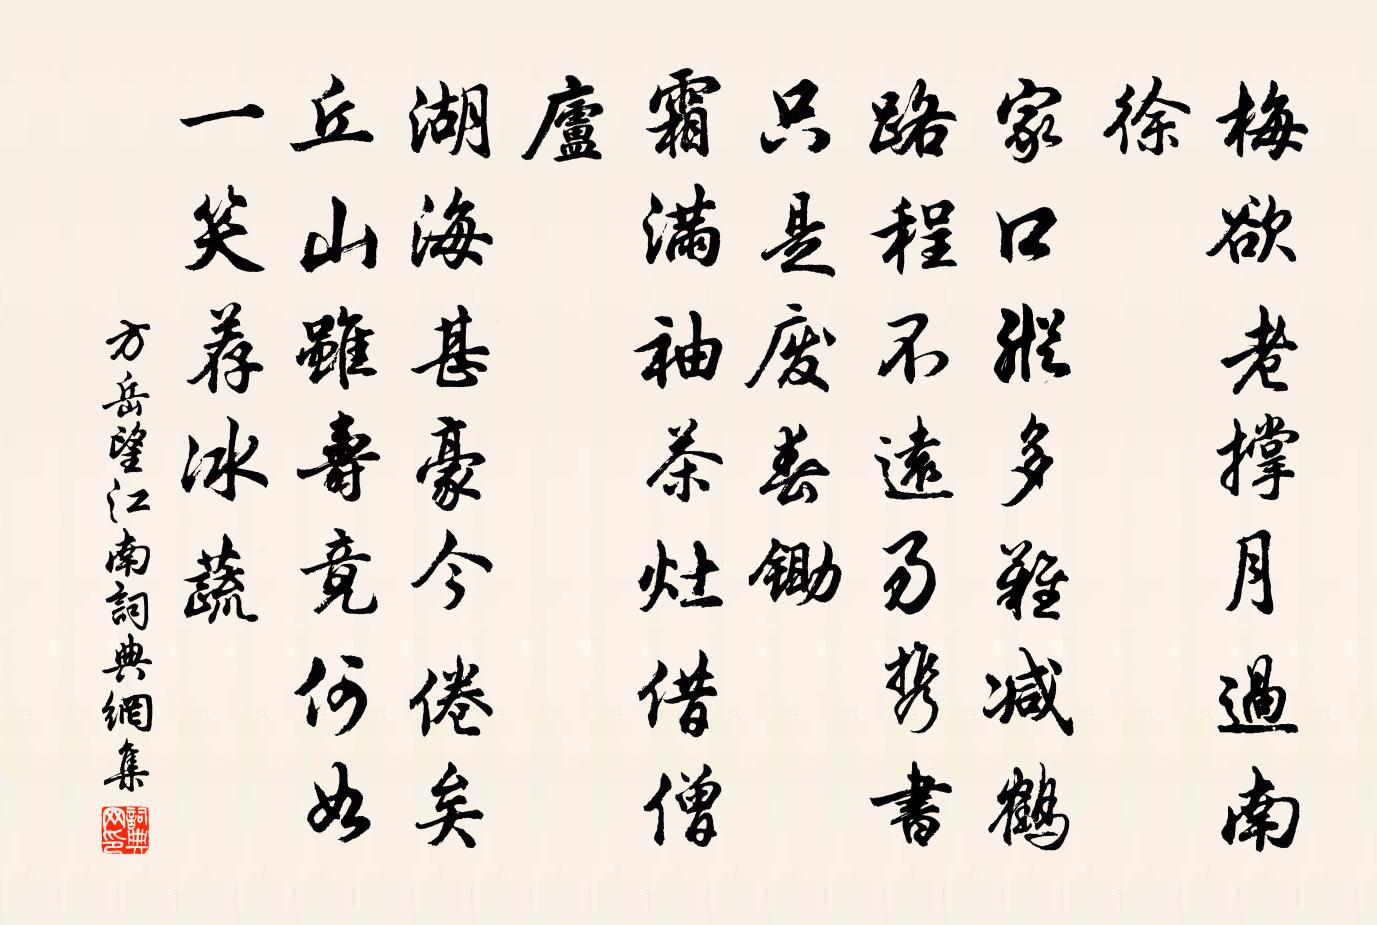 梅欲老撐月過南
徐
家口縱多難减鶴
路程不遠易携書
只是废春鋤
霜滿袖茶灶借僧
廬
湖海甚豪今倦矣
丘山雖壽竟何如
一笑荐冰蔬
方岳望江南詞典網集
詞典网印